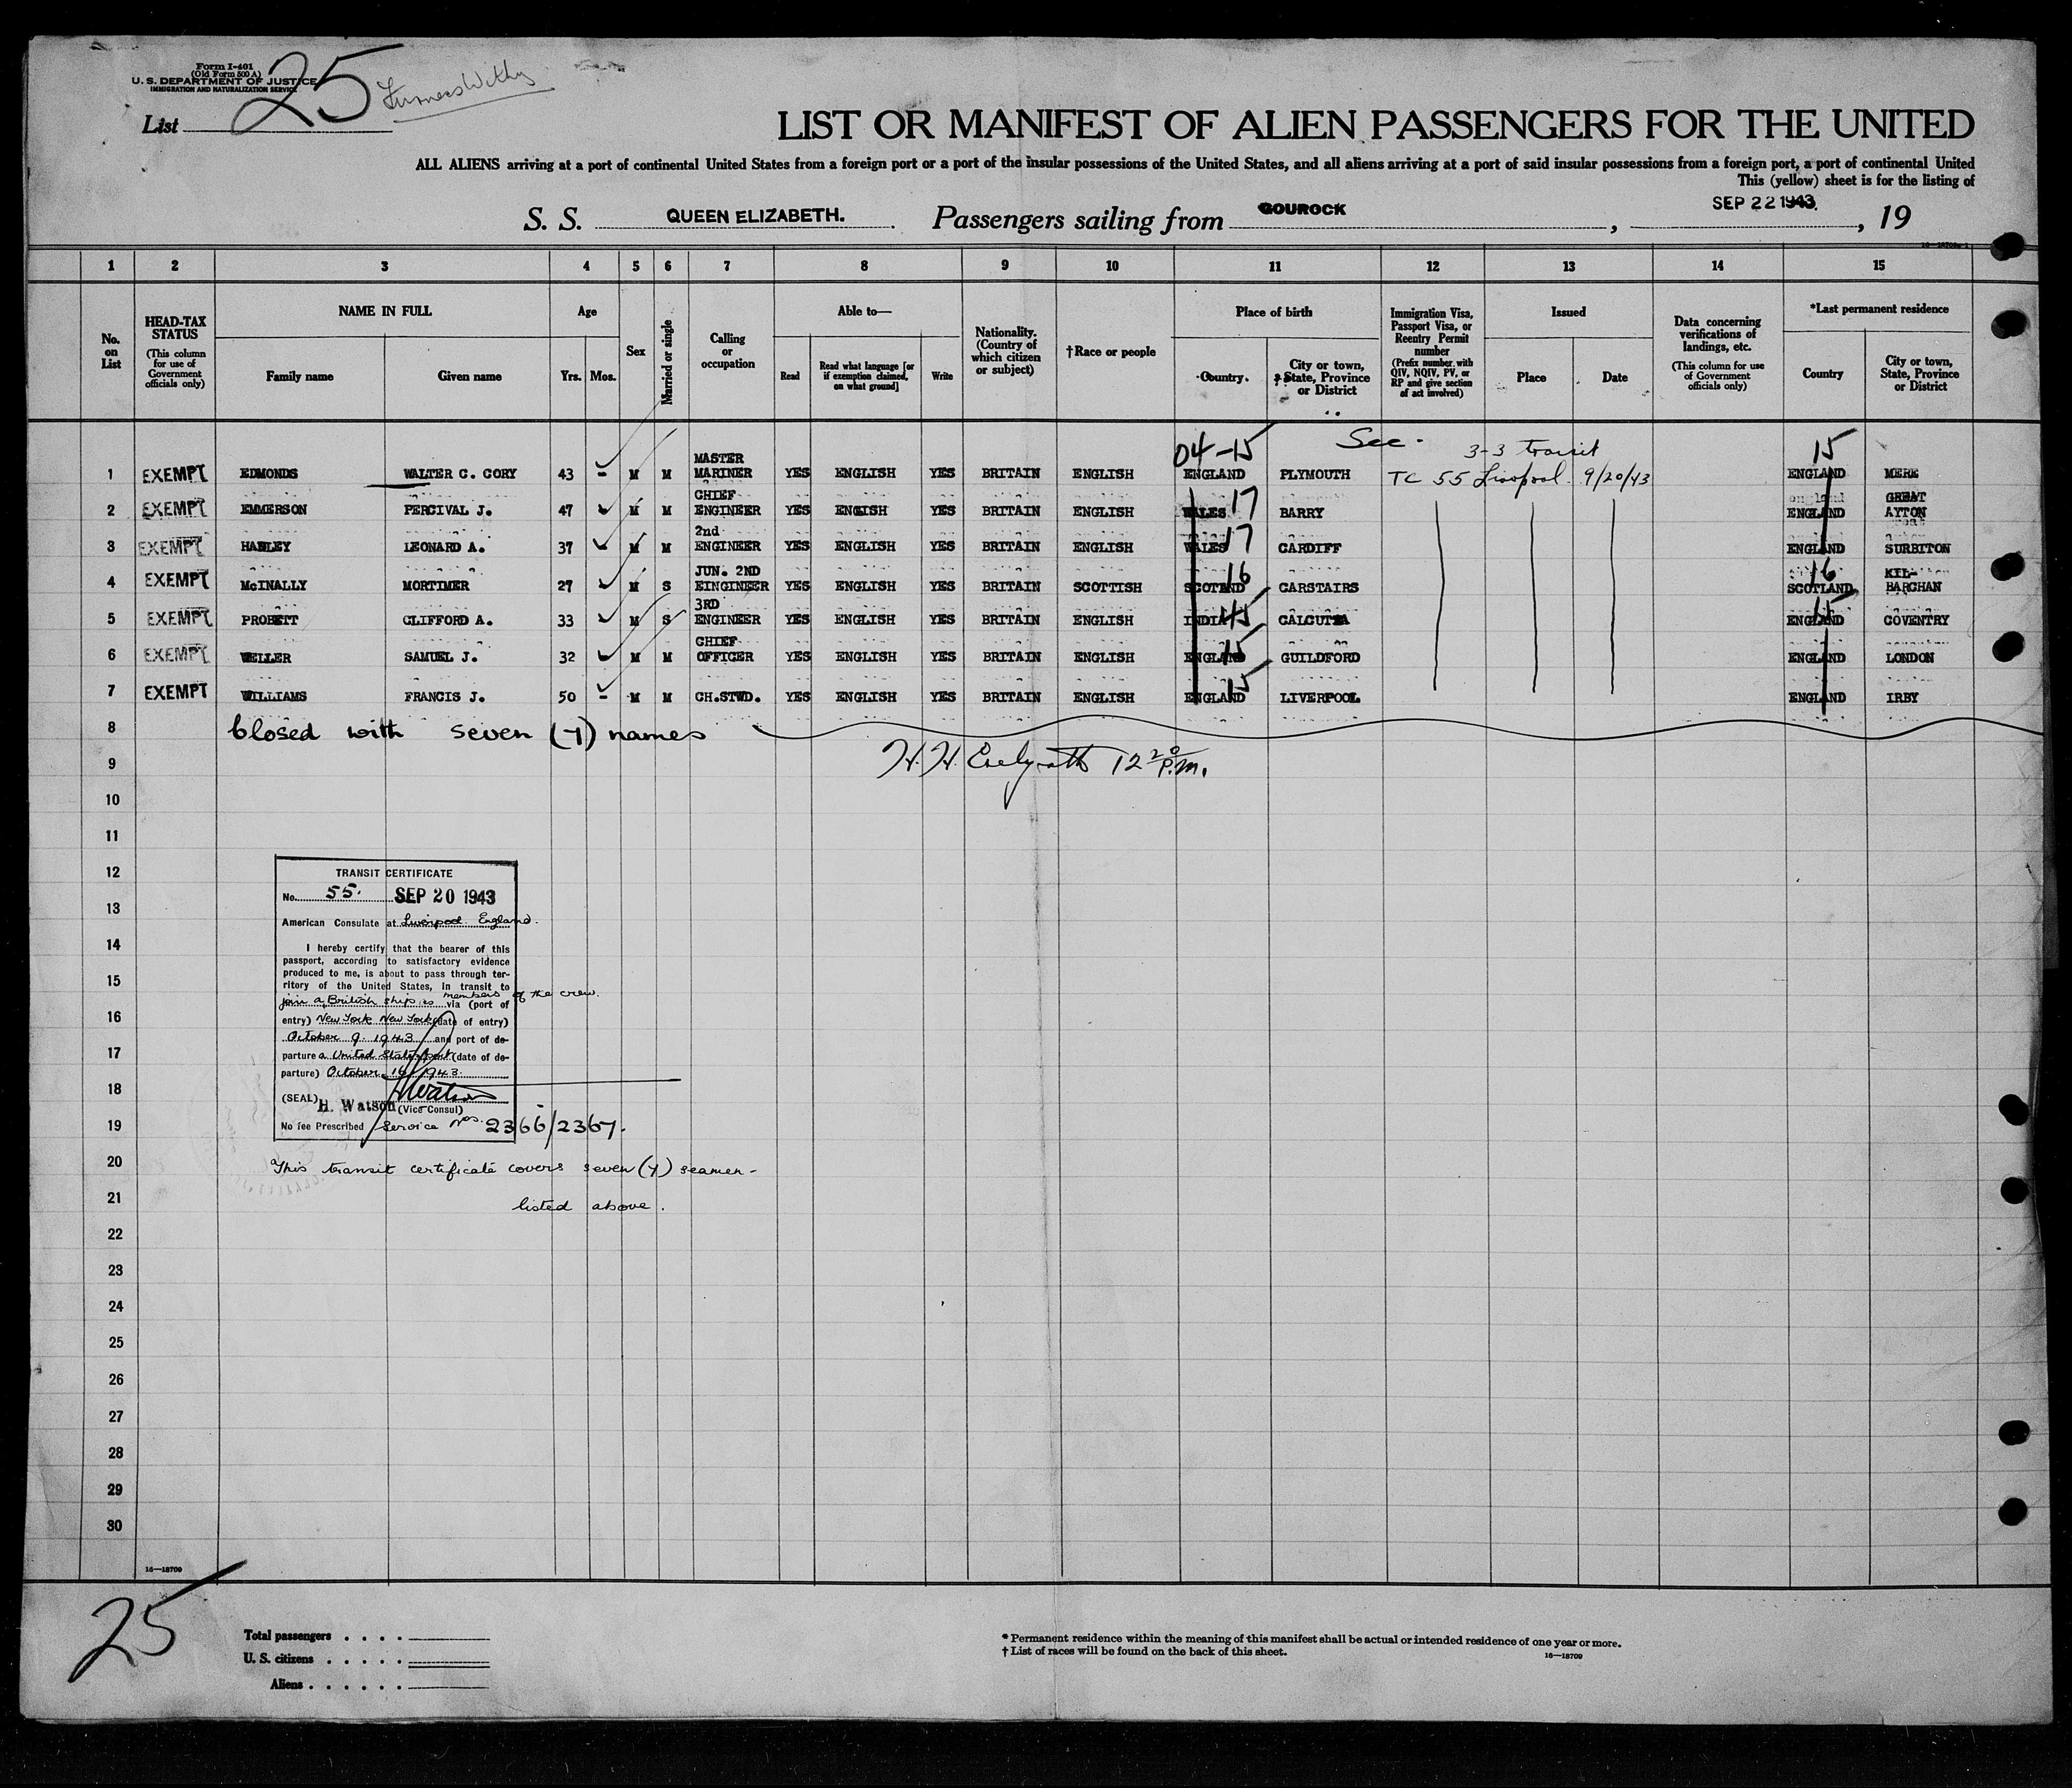 Form I-401
(Old Form 500 A)
U. S. DEPARTMENT OF JUSTICE
IMMIGRATION AND NATURALIZATION SERVICE
List 25
LIST OR MANIFEST OF ALIEN PASSENGERS FOR THE UNITED
ALL ALIENS arriving at a port of continental United States from a foreign port or a port of the insular possessions of the United States, and all aliens arriving at a port of said insular possessions from a foreign port, a port of continental United
This (yellow) sheet is for the listing of
S. S. QUEEN ELIZABETH. Passengers sailing from GOUROCK, SEP 22 1943, 19
1 2 3 4 5 6 7 8 9 10 11 12 13 14 15
No. on List
HEAD-TAX STATUS
(This column for use of Government officials only)
NAME IN FULL
Family name Given name
Age
Yrs. Mos.
Sex
Married or single
Calling or occupation
Able to—
Read
Read what language [or if exemption claimed, on what ground]
Write
Nationality. (Country of which citizen or subject)
†Race or people
Place of birth
Country.
City or town, State, Province or District
Immigration Visa, Passport Visa, or Reentry Permit number
(Prefix number with QIV, NQIV, PV, or RP and give section of act involved)
Issued
Place Date
Data concerning verifications of landings, etc.
(This column for use of Government officials only)
*Last permanent residence
Country
City or town, State, Province or District
04-15 See. 3-3 transit 15
1 EXEMPT EDMONDS WALTER C. CORY 43 - M M MASTER MARINER YES ENGLISH YES BRITAIN ENGLISH ENGLAND PLYMOUTH TC 55 Liverpool 9/20/43 ENGLAND MERE
2 EXEMPT EMMERSON PERCIVAL J. 47 M M CHIEF ENGINEER YES ENGISH YES BRITAIN ENGLISH WALES 17 BARRY ENGLAND GREAT AYTON
3 EXEMPT HADLEY LEONARD A. 37 - M M 2nd ENGINEER YES ENGLISH YES BRITAIN ENGLISH WALES 17 CARDIFF ENGLAND SURBITON
4 EXEMPT McINALLY MORTIMER 27 M S JUN. 2ND EINGINEER YES ENGLISH YES BRITAIN SCOTTISH SCOTLAND 16 CARSTAIRS 16 SCOTLAND KIL-BARCHAN
5 EXEMPT PROBETT CLIFFORD A. 33 M S 3RD ENGINEER YES ENGLISH YES BRITAIN ENGLISH INDIA 45 CALCUTTA ENGLAND 15 COVENTRY
6 EXEMPT WELLER SAMUEL J. 32 M M CHIEF OFFICER YES ENGLISH YES BRITAIN ENGLISH ENGLAND 15 GUILDFORD ENGLAND LONDON
7 EXEMPT WILLIAMS FRANCIS J. 50 - M M CH.STWD. YES ENGLISH YES BRITAIN ENGLISH ENGLAND 15 LIVERPOOL ENGLAND IRBY
8 Closed with seven (7) names
9 H. H. 12 20 P.M.
10
11
12
13
14
15
16
17
18
19
20
21
22
23
24
25
26
27
28
29
30
TRANSIT CERTIFICATE
No. 55. SEP 20 1943
American Consulate at Liverpool England.
I hereby certify that the bearer of this
passport, according to satisfactory evidence
produced to me, is about to pass through ter-
ritory of the United States, in transit to
join a British ship as members of the crew. via (port of
entry) New York New York (date of entry)
October 9. 1943 and port of de-
parture a United States port (date of de-
parture) October 16 1943
(SEAL) H. Watson HWatson (Vice Consul)
No fee Prescribed Service Nos. 2366/2367.
This transit certificate covers seven (7) seamen -
listed above.
16—18709
25
Total passengers . . . .
U. S. citizens . . . . .
Aliens . . . . . .
* Permanent residence within the meaning of this manifest shall be actual or intended residence of one year or more.
† List of races will be found on the back of this sheet.
16—18709